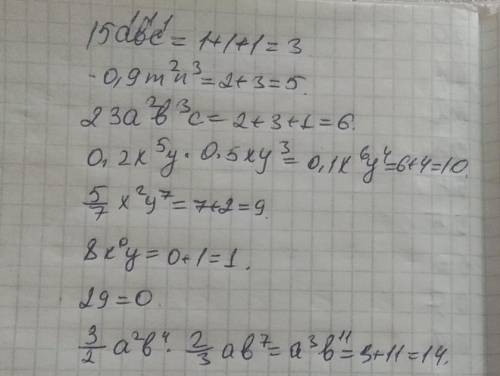 15a¹b¹c¹ = 1+1+1 = 3
-0,9m²n³ = 2+3 = 5.
23a²b³c = 2+3+1 = 6.
0,2x⁵y · 0,5xy³ = 0,1x⁶y⁴ = 6+4 = 10.
5/7 x²y⁷ = 7+2 = 9.
8x⁰y = 0+1 = 1.
29 = 0.
3/2 a²b⁴ · 2/3 ab⁷ = a³b¹¹ = 3+11 = 14.